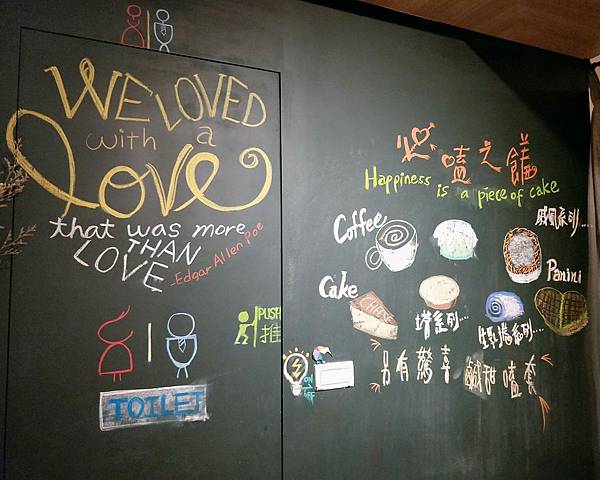 WE LOVED
with a
Love
that was more
THAN
LOVE
-Edgar Allen Poe
PUSH
推
TOILET
嗑之
Happiness is a piece of cake
Coffee
戚風系列....
Cake
CHEESE
Panini
塔系列...
生乳捲系列...
另有驚喜 鹹甜嗑套
ON
OFF